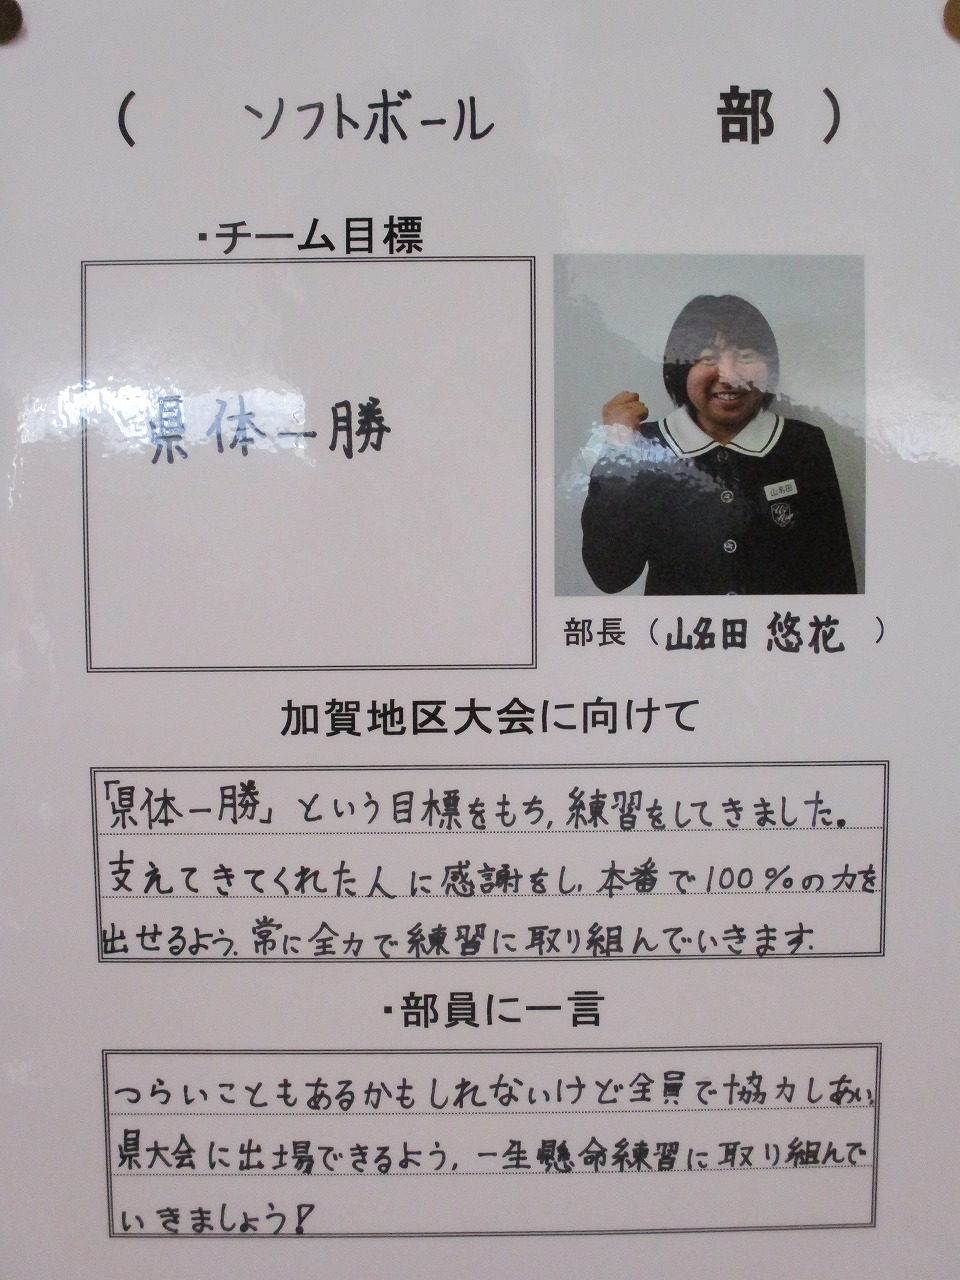 ( ソフトボール 部 )
・チーム目標
県体一勝
山名田
部長 ( 山名田 悠花 )
加賀地区大会に向けて
「県体一勝」という目標をもち,練習をしてきました。
支えてきてくれた人に感謝をし,本番で100%の力を
出せるよう,常に全力で練習に取り組んでいきます.
・部員に一言
つらいこともあるかもしれないけど全員で協力しあい,
県大会に出場できるよう,一生懸命練習に取り組んで
いきましょう!